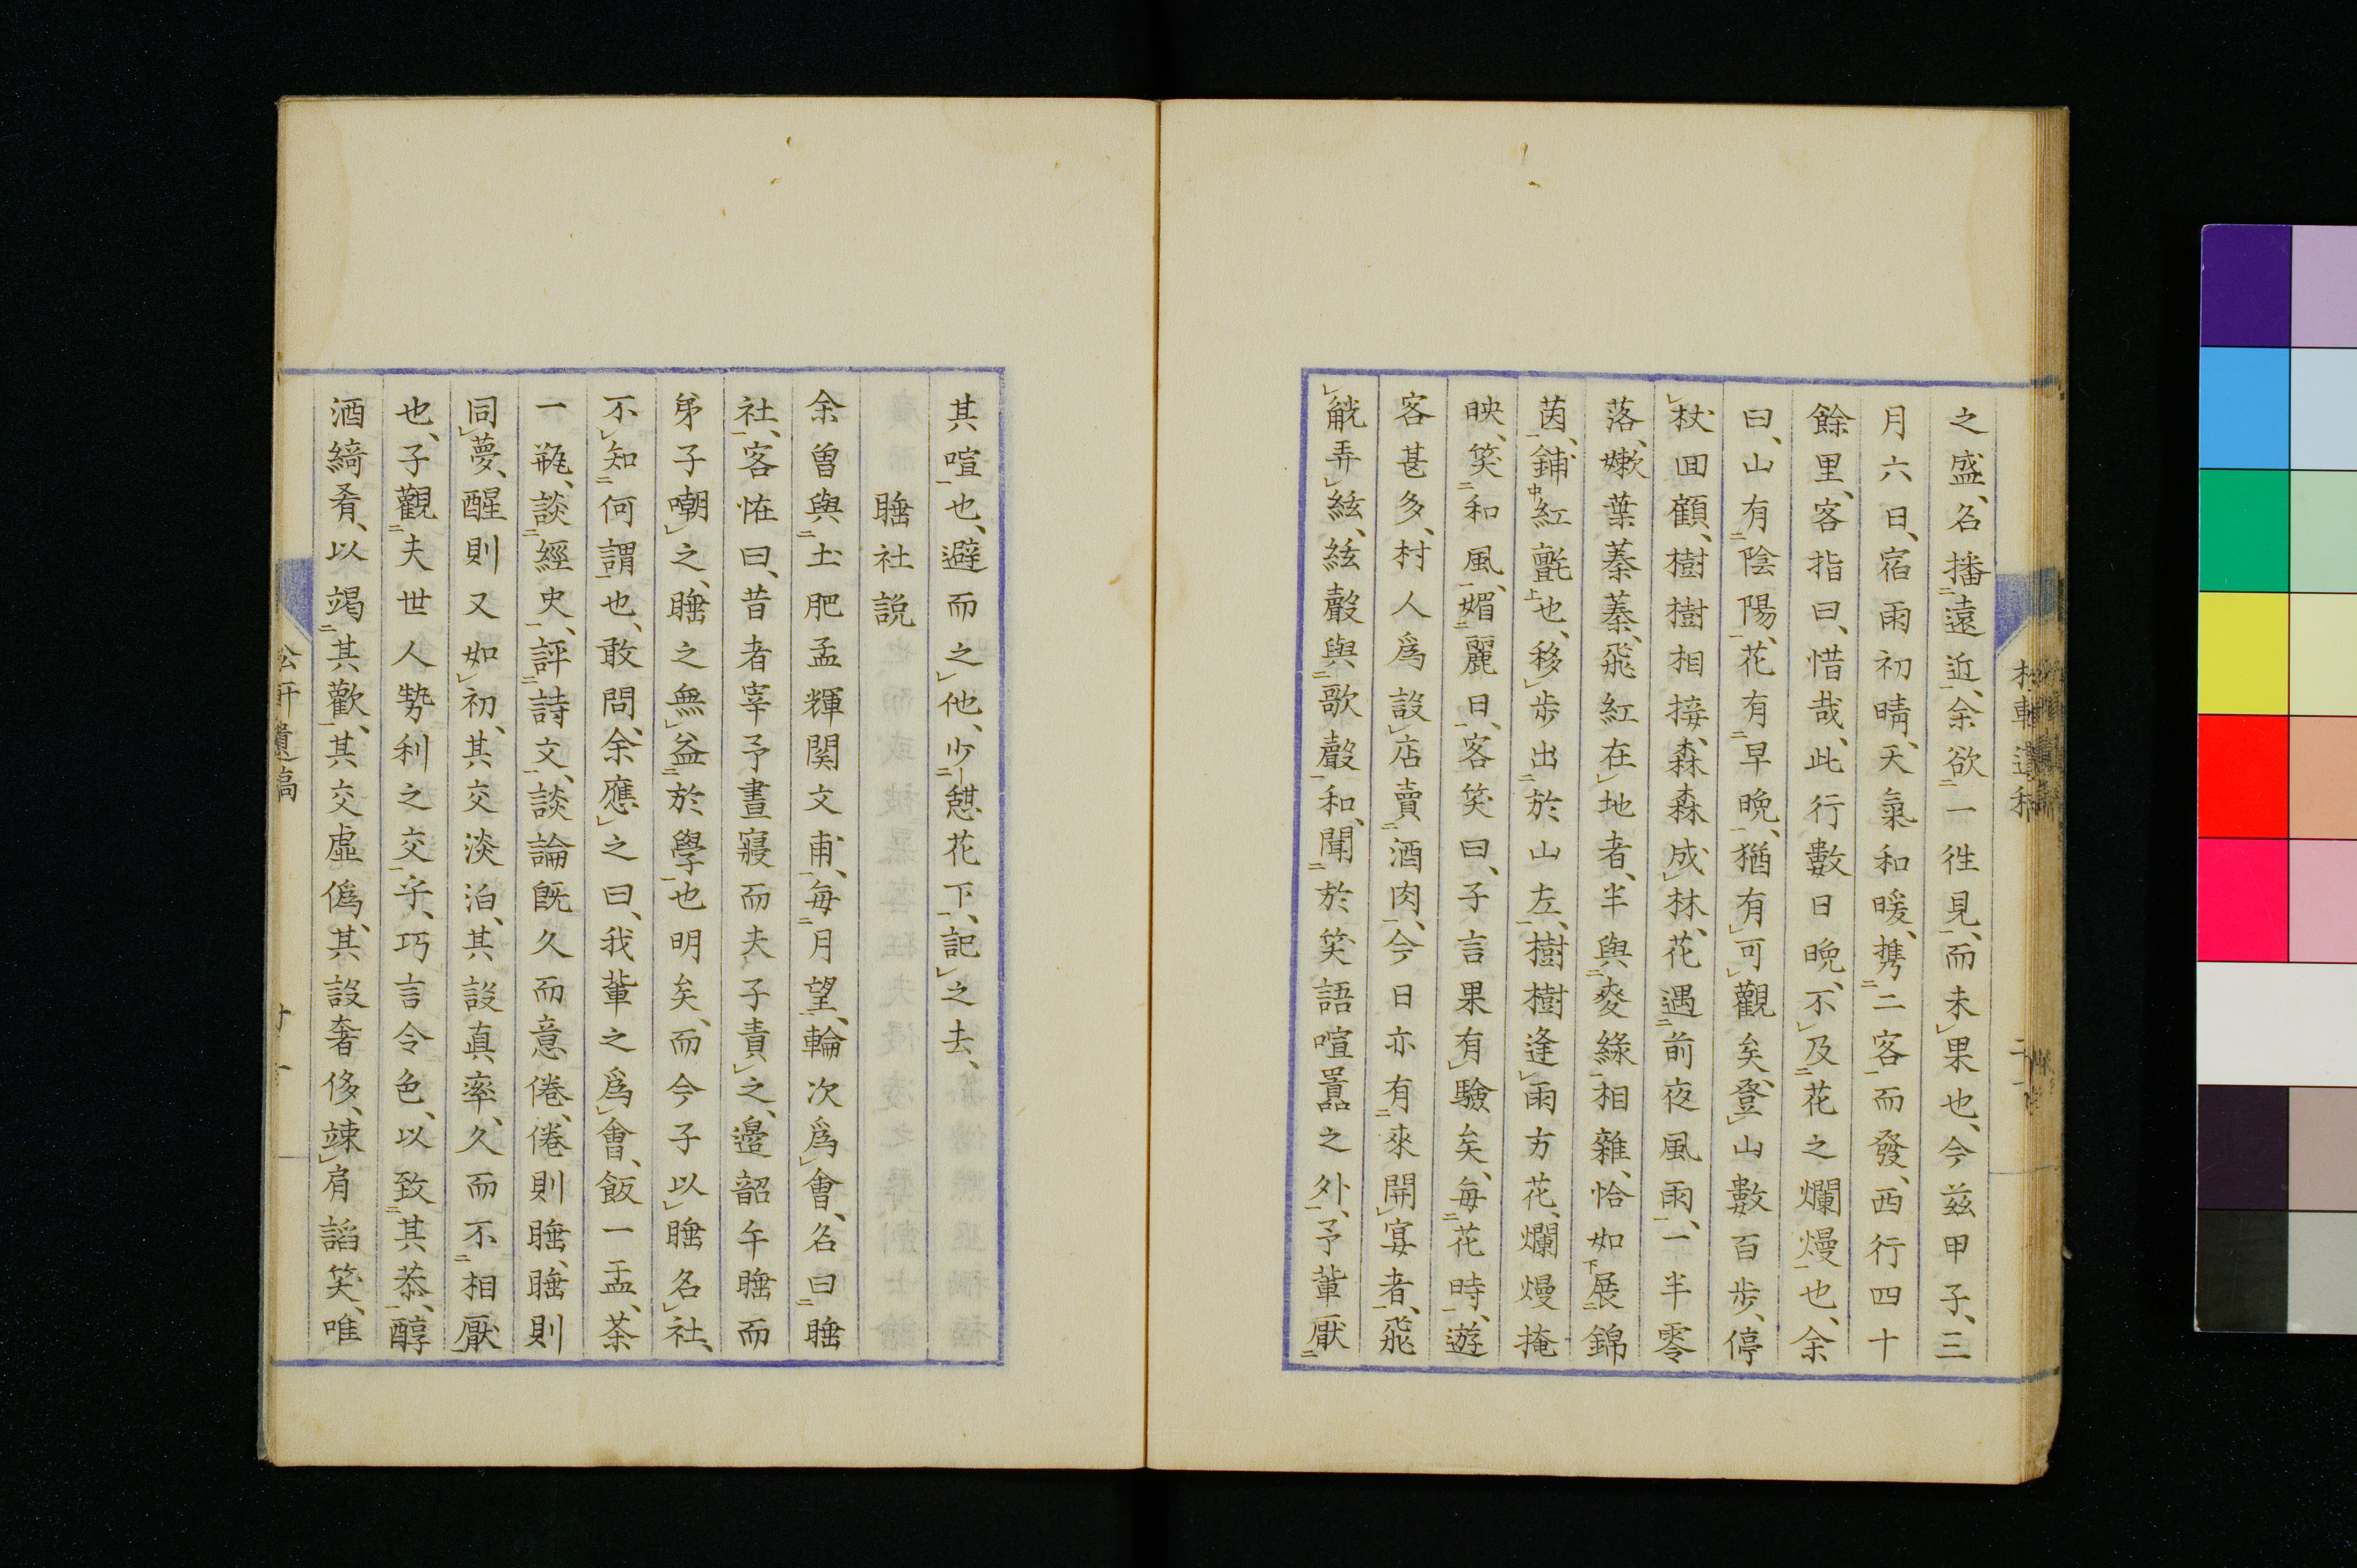 之盛、名播遠近、余欲一徃見、而未果也、今茲甲子、三
月六日、宿雨初晴、天氣和暖、携二客而發、西行四十
餘里、客指曰、惜哉、此行數日晩、不及花之爛熳也、余
曰、山有陰陽、花有早晩、猶有可觀矣、登山數百歩、停
杖囬顧、樹樹相接、森森成林、花遇前夜風雨、一半零
落、嫩葉蓁蓁、飛紅在地者、半與麥綠相雜、恰如展錦
茵、鋪紅氈也、移歩出於山左、樹樹逢雨方花、爛熳掩
映、笑和風、媚麗日、客笑曰、子言果有驗矣、毎花時、遊
客甚多、村人爲設店賣酒肉、今日亦有來開宴者、飛
觥弄絃、絃聲與歌聲和、聞於笑語喧囂之外、予輩厭
其喧也、避而之他、少憩花下、記之去、
睡社説
余曽與土肥孟輝関文甫、毎月望、輪次爲會、名曰睡
社、客恠曰、昔者宰予晝寢而夫子責之、邊韶午睡而
弟子嘲之、睡之無益於學也明矣、而今子以睡名社、
不知何謂也、敢問、余應之曰、我輩之爲會、飯一盂、茶
一瓶、談經史、評詩文、談論既久而意倦、倦則睡、睡則
同夢、醒則又如初、其交淡泊、其設真率、久而不相厭
也、子觀夫世人勢利之交乎、巧言令色、以致其恭、醇
酒綺肴、以竭其歡、其交虚僞、其設奢侈、竦肩謟笑、唯
松軒遺稿